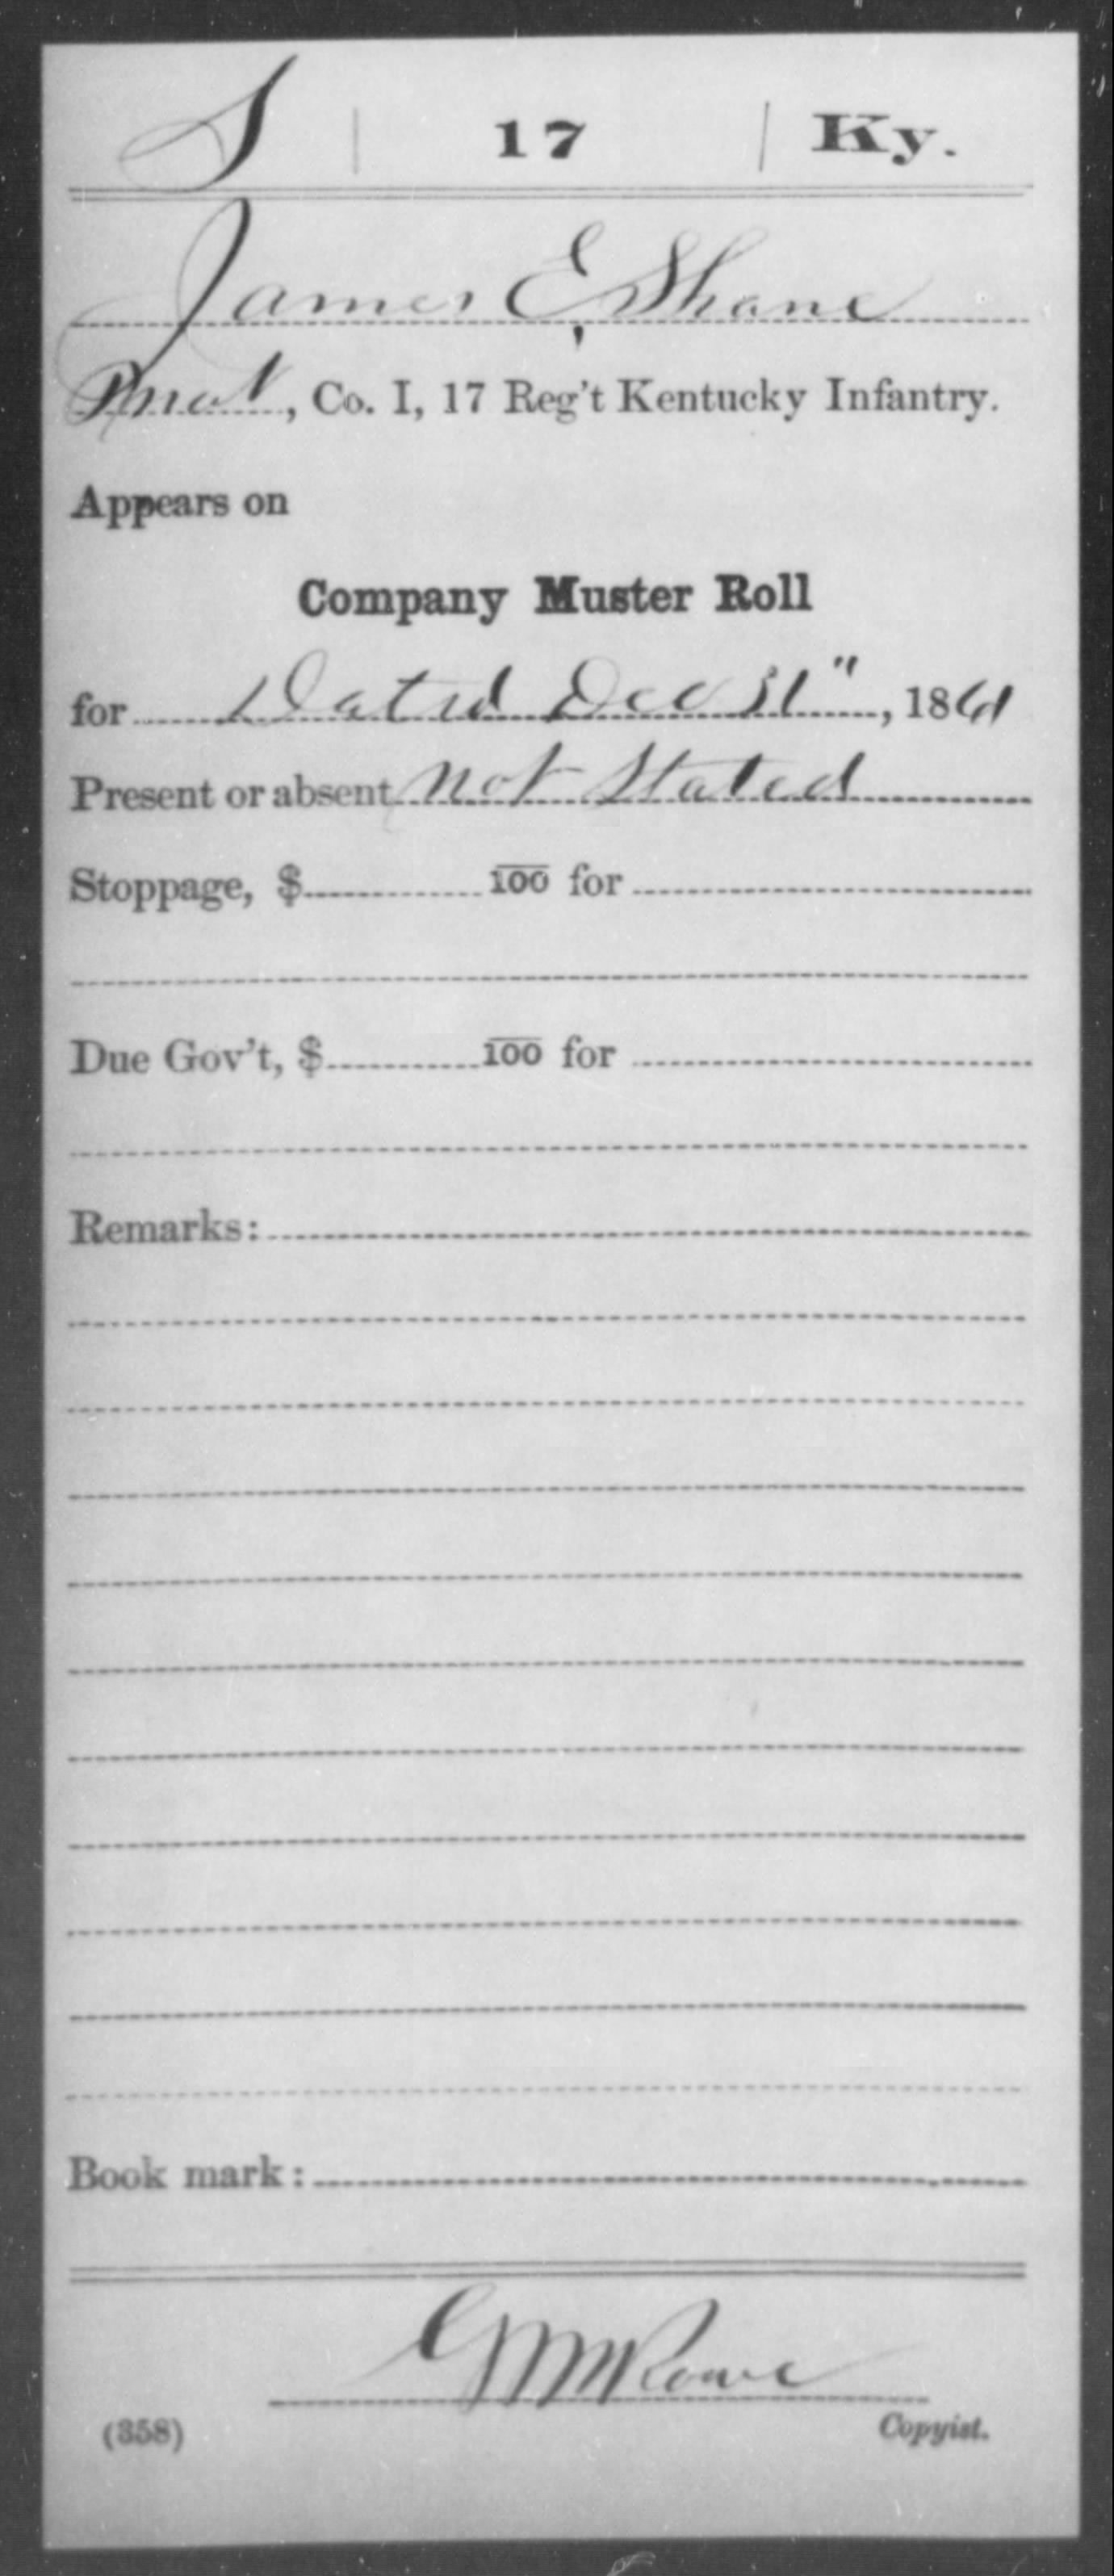 S | 17 | Ky.
James E. Shane
Privat, Co. I, 17 Reg't Kentucky Infantry.
Appears on
Company Muster Roll
for Dated Dec 31", 1861
Present or absent Not Stated
Stoppage, $ 100 for
Due Gov't, $ 100 for
Remarks:
Book mark:
Rowe
(358) Copyist.